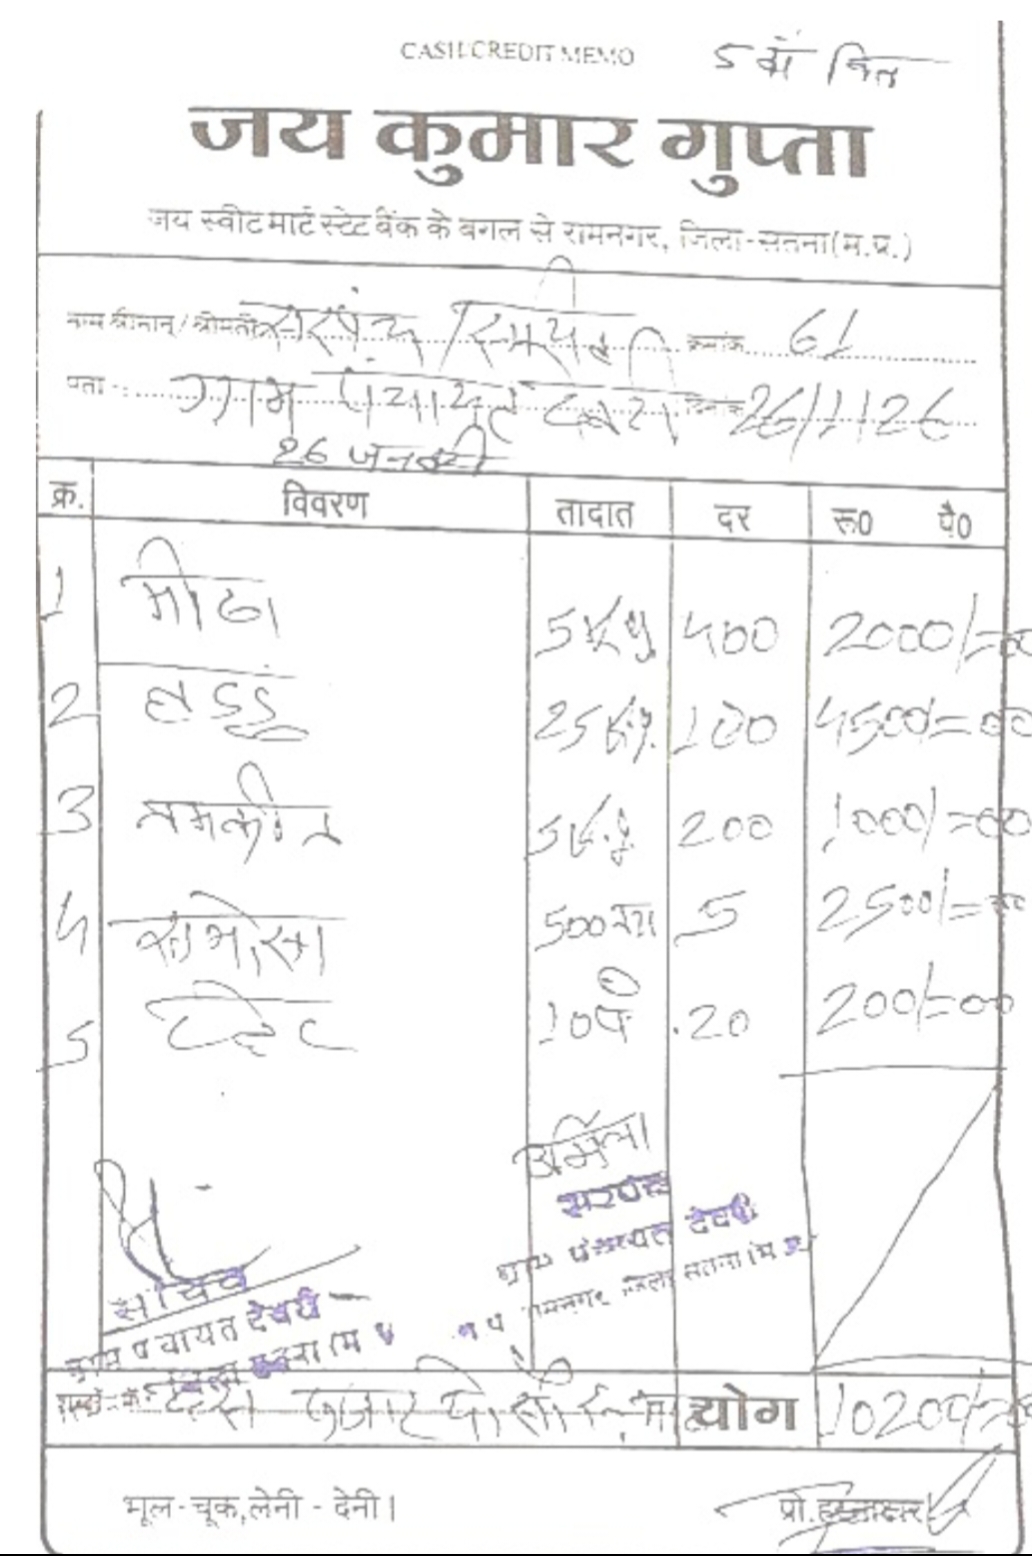 CASH/CREDIT MEMO
5 वाँ वित्त
जय कुमार गुप्ता
जय स्वीट मार्ट स्टेट बैंक के बगल से रामनगर, जिला-सतना(म.प्र.)
नाम श्रीमान्/श्रीमती सरपंच/सचिव क्रमांक 61
पता ग्राम पंचायत देवरी दिनांक 26/1/26
26 जनवरी
क्र. विवरण तादात दर रू0 पै0
1 मीठा 5 Kg 400 2000/=00
2 लड्डू 25 Kg. 180 4500/=00
3 नमकीन 5 K.g 200 1000/=00
4 समोसा 500 5 2500/=00
5 10 20 200/=00
उर्मिला
सरपंच
ग्राम पंचायत देवरी
रामनगर जिला सतना (म प्र
सचिव
ग्राम पंचायत देवरी
दस हजार दो सौ योग 10200/=00
भूल-चूक,लेनी-देनी।
प्रो.हस्ताक्षर